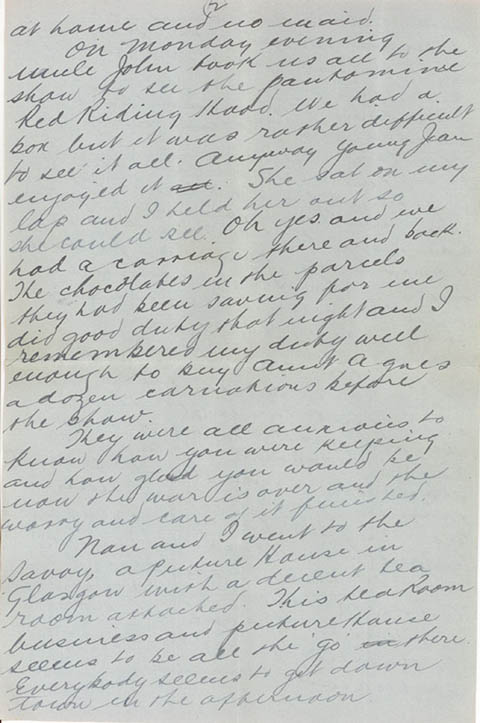 2
at home and no maid.
On Monday evening
uncle John took us all to the
show to see the pantomine
Red Riding Hood. We had a
box but it was rather difficult
to see it all. Anyway young Jean
enjoyed it. She sat on my
lap and I held her out so
she could see. Oh yes and we
had a carriage there and back.
The chocolates in the parcels
they had been saving for me
did good duty that night and I
remembered my duty well
enough to buy Aunt Agnes
a dozen carnations before
the show.
They were all anxious to
know how you were keeping
and how glad you would be
now the war is over and the
worry and care of it finished.
Nan and I went to the
Savoy, a picture House in
Glasgow with a decent tea
room attached. This tea Room
business and picture House
seems to be all the go there.
Everybody seems to get down
town in the afternoon